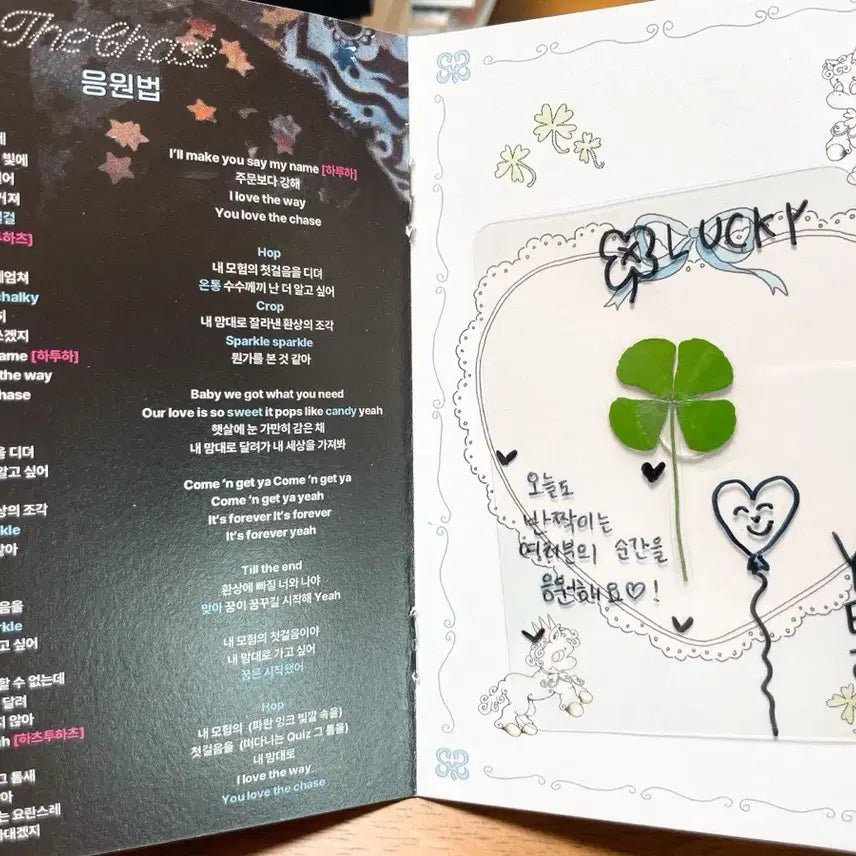 The Chase
응원법
빛에
chalky
ame [하투하]
the way
hase
을 디뎌
알고 싶어
상의 조각
kle
음을
rkle
고 싶어
할 수 없는데
달려
지 않아
[하츠투하츠]
그 틈새
는 요란스레
I'll make you say my name [하투하]
주문보다 강해
I love the way
You love the chase
Hop
내 모험의 첫걸음을 디뎌
온통 수수께끼 난 더 알고 싶어
Crop
내 맘대로 잘라낸 환상의 조각
Sparkle sparkle
뭔가를 본 것 같아
Baby we got what you need
Our love is so sweet it pops like candy yeah
햇살에 눈 가만히 감은 채
내 맘대로 달려가 내 세상을 가져봐
Come 'n get ya Come 'n get ya
Come 'n get ya yeah
It's forever It's forever
It's forever yeah
Till the end
환상에 빠질 너와 나야
맞아 꿈이 꿈꾸길 시작해 Yeah
내 모험의 첫걸음이야
내 맘대로 가고 싶어
꿈은 시작됐어
Hop
내 모험의 (파란 잉크 빛깔 속을)
첫걸음을 (떠다니는 Quiz 그 틈을)
내 맘대로
I love the way
You love the chase
LUCKY
오늘도
반짝이는
여러분의 순간을
응원해요♡!